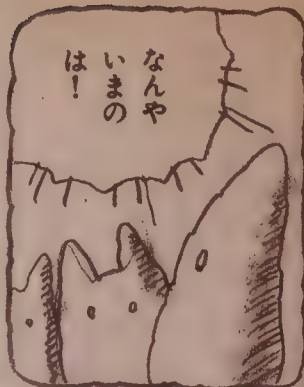 なんや
いまの
は！